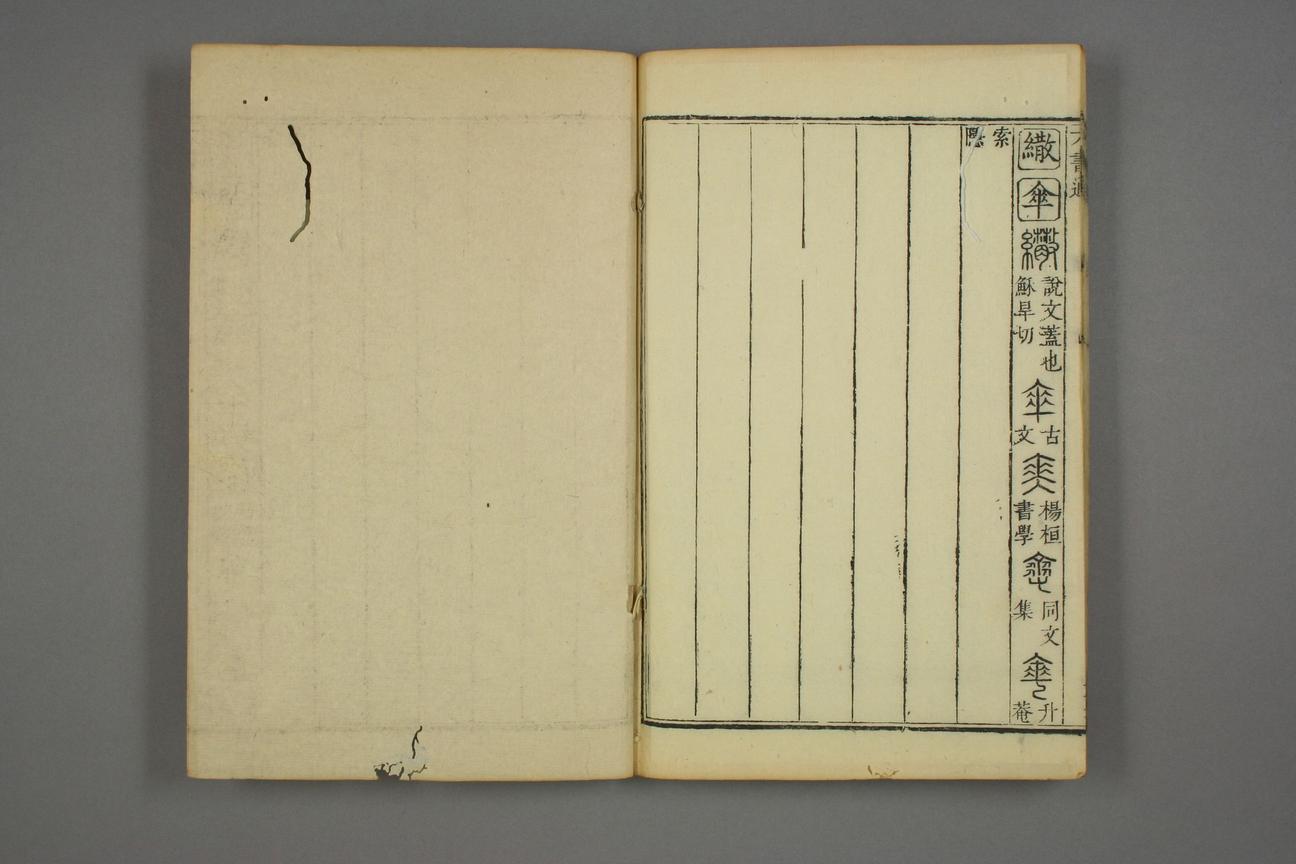 六書通
繖 傘 繖 說文蓋也蘇旱切 傘 古文 傘 楊桓書學 傘 同文集 傘 升菴
索隱